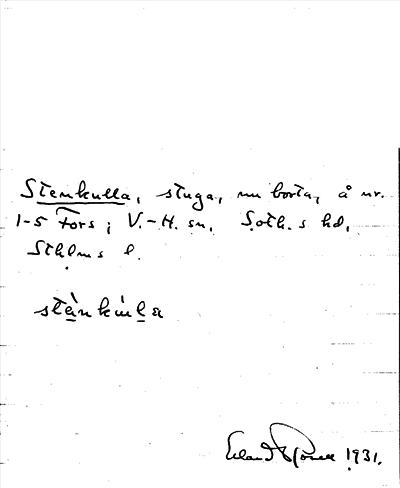 Stenkulla, stuga, nu borta, å nr.
1-5 Fors i V.-H. sn, Soth.s hd,
Sthlms l.
stànkúla
Erland 1931.